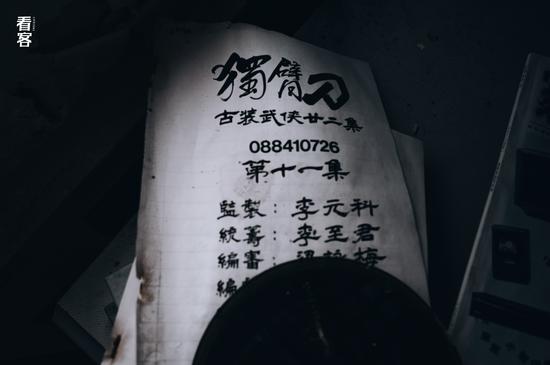 看客
獨臂刀
古裝武俠廿二集
088410726
第十一集
監製：李元科
統籌：李至君
編審：梁詠梅
編